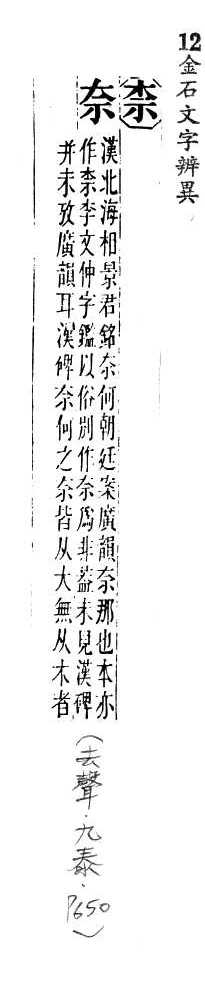 12金石文字辨異
〔柰〕
奈
漢北海相景君銘奈何朝廷案廣韻奈那也本亦
作柰李文仲字鑑以俗別作奈爲非蓋未見漢碑
并未攷廣韻耳漢碑奈何之奈皆从大無从木者
(去聲·九泰·P650)